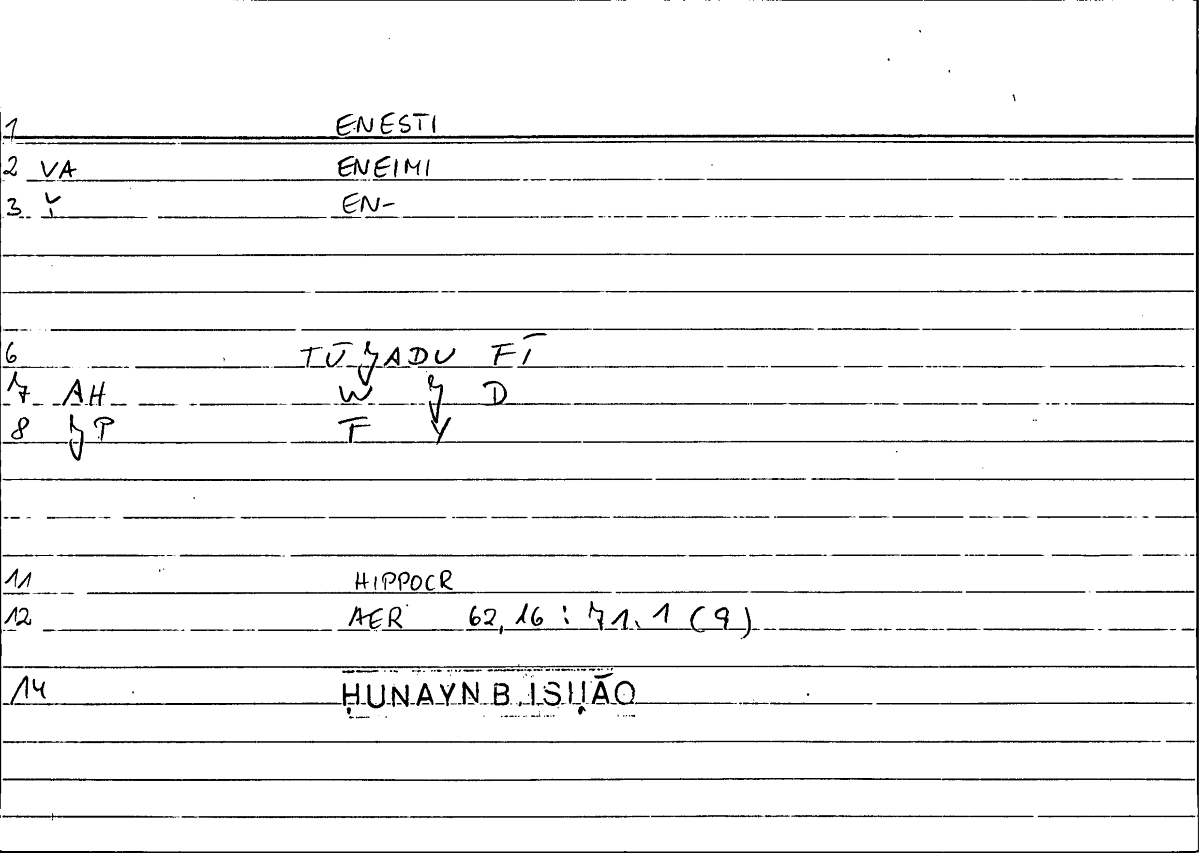 1 ENESTI
2 VA ENEIMI
3 Ỵ EN-
6 TŪJADU FĪ
7 AH W J D
8 JP F Y
11 HIPPOCR
12 AER 62,16 : 71.1 (9)
14 ḤUNAYN B. ISḤĀQ